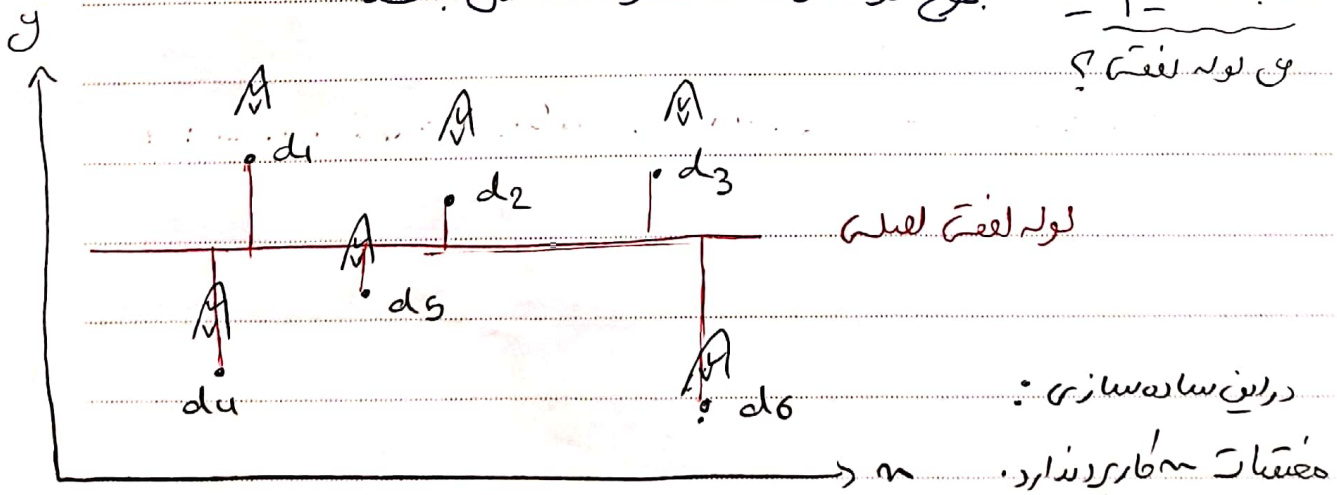 y
ی لوله نفتی؟
d1
d2
d3
لوله نفتی اصلی
d5
d4
d6
در این ساده سازی:
مختصات x کاربرد ندارد.
x